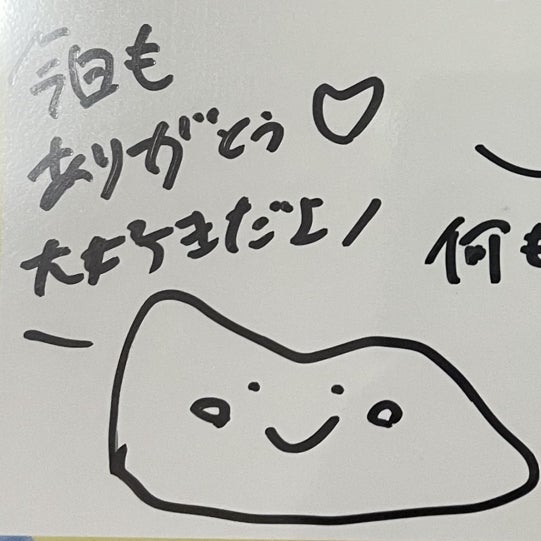 今日も
ありがとう♡
大好きだよ
何も